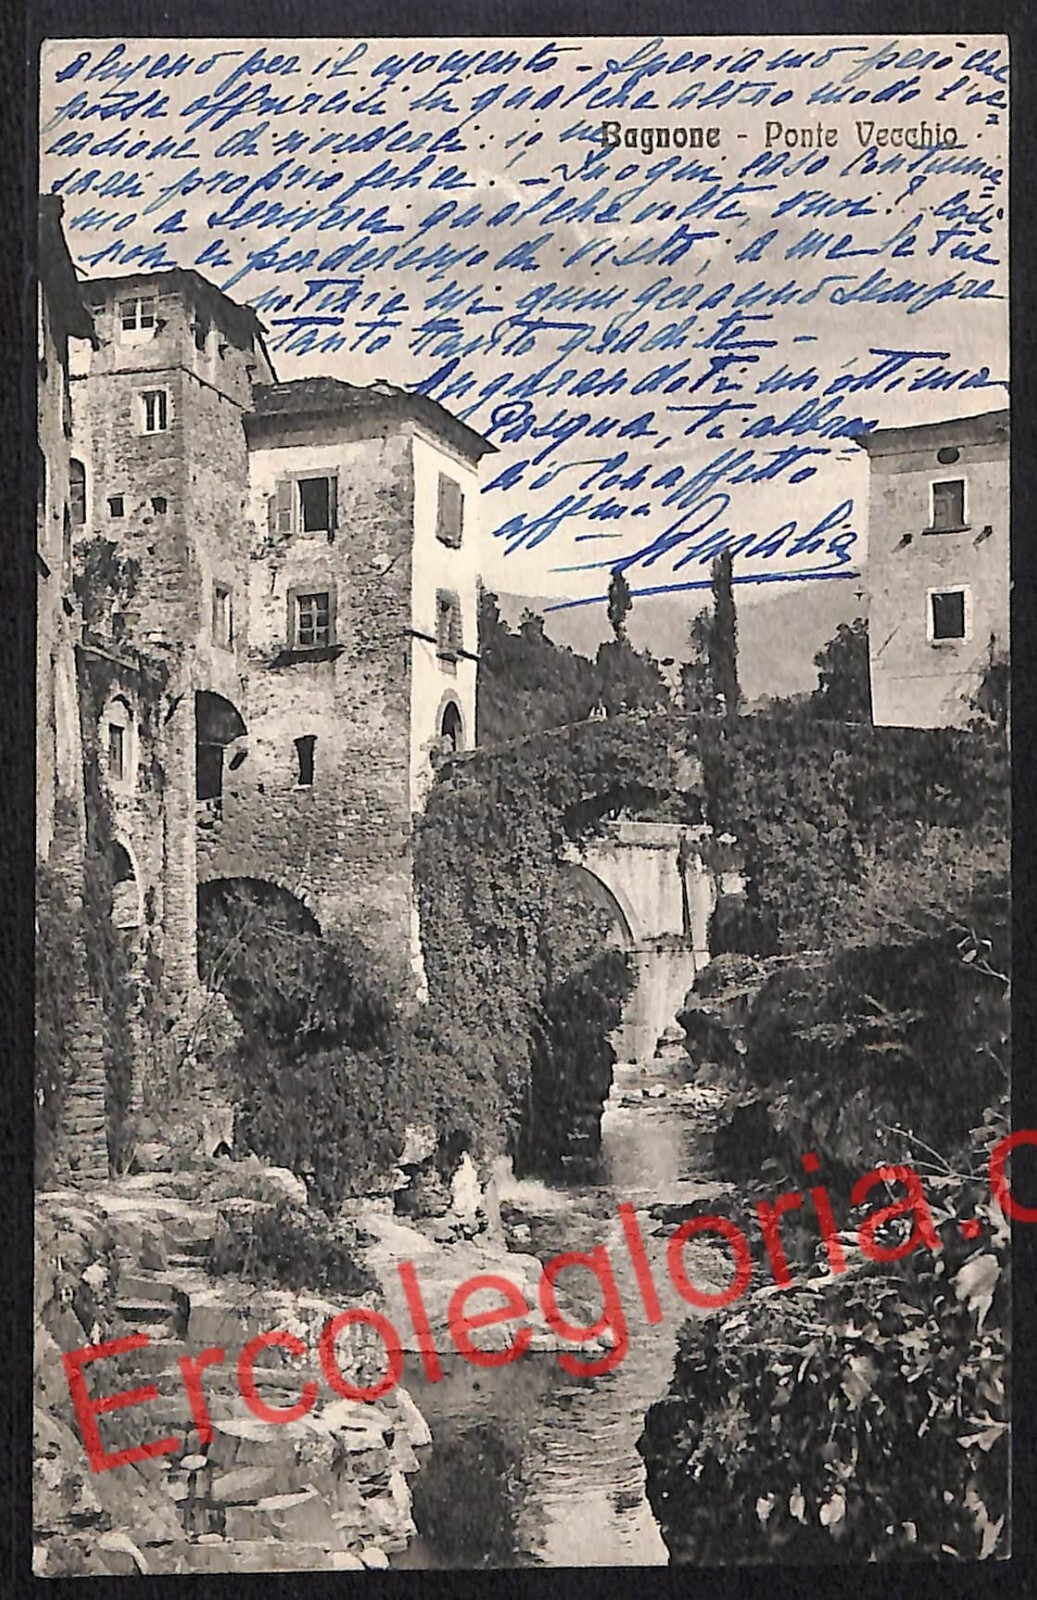 almeno per il momento - Speriamo però che
possa offrircisi in qualche altro modo l'oc=
casione di rivederci: io ne
Bagnone - Ponte Vecchio
sarei proprio felice. - In ogni caso continuia=
mo a scriverci qualche volta, vuoi? Così
non ci perderemo di vista; a me le tue
notizie mi giungeranno sempre
tanto tanto gradite -
Augurandoti un'ottima
Pasqua, ti abbrac=
cio con affetto
aff.ma
Amalia
Ercolegloria.c